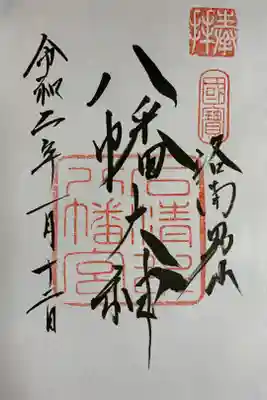 奉拝
國寶
洛南男山
八幡大神
石清水
八幡宮
令和二年一月十二日